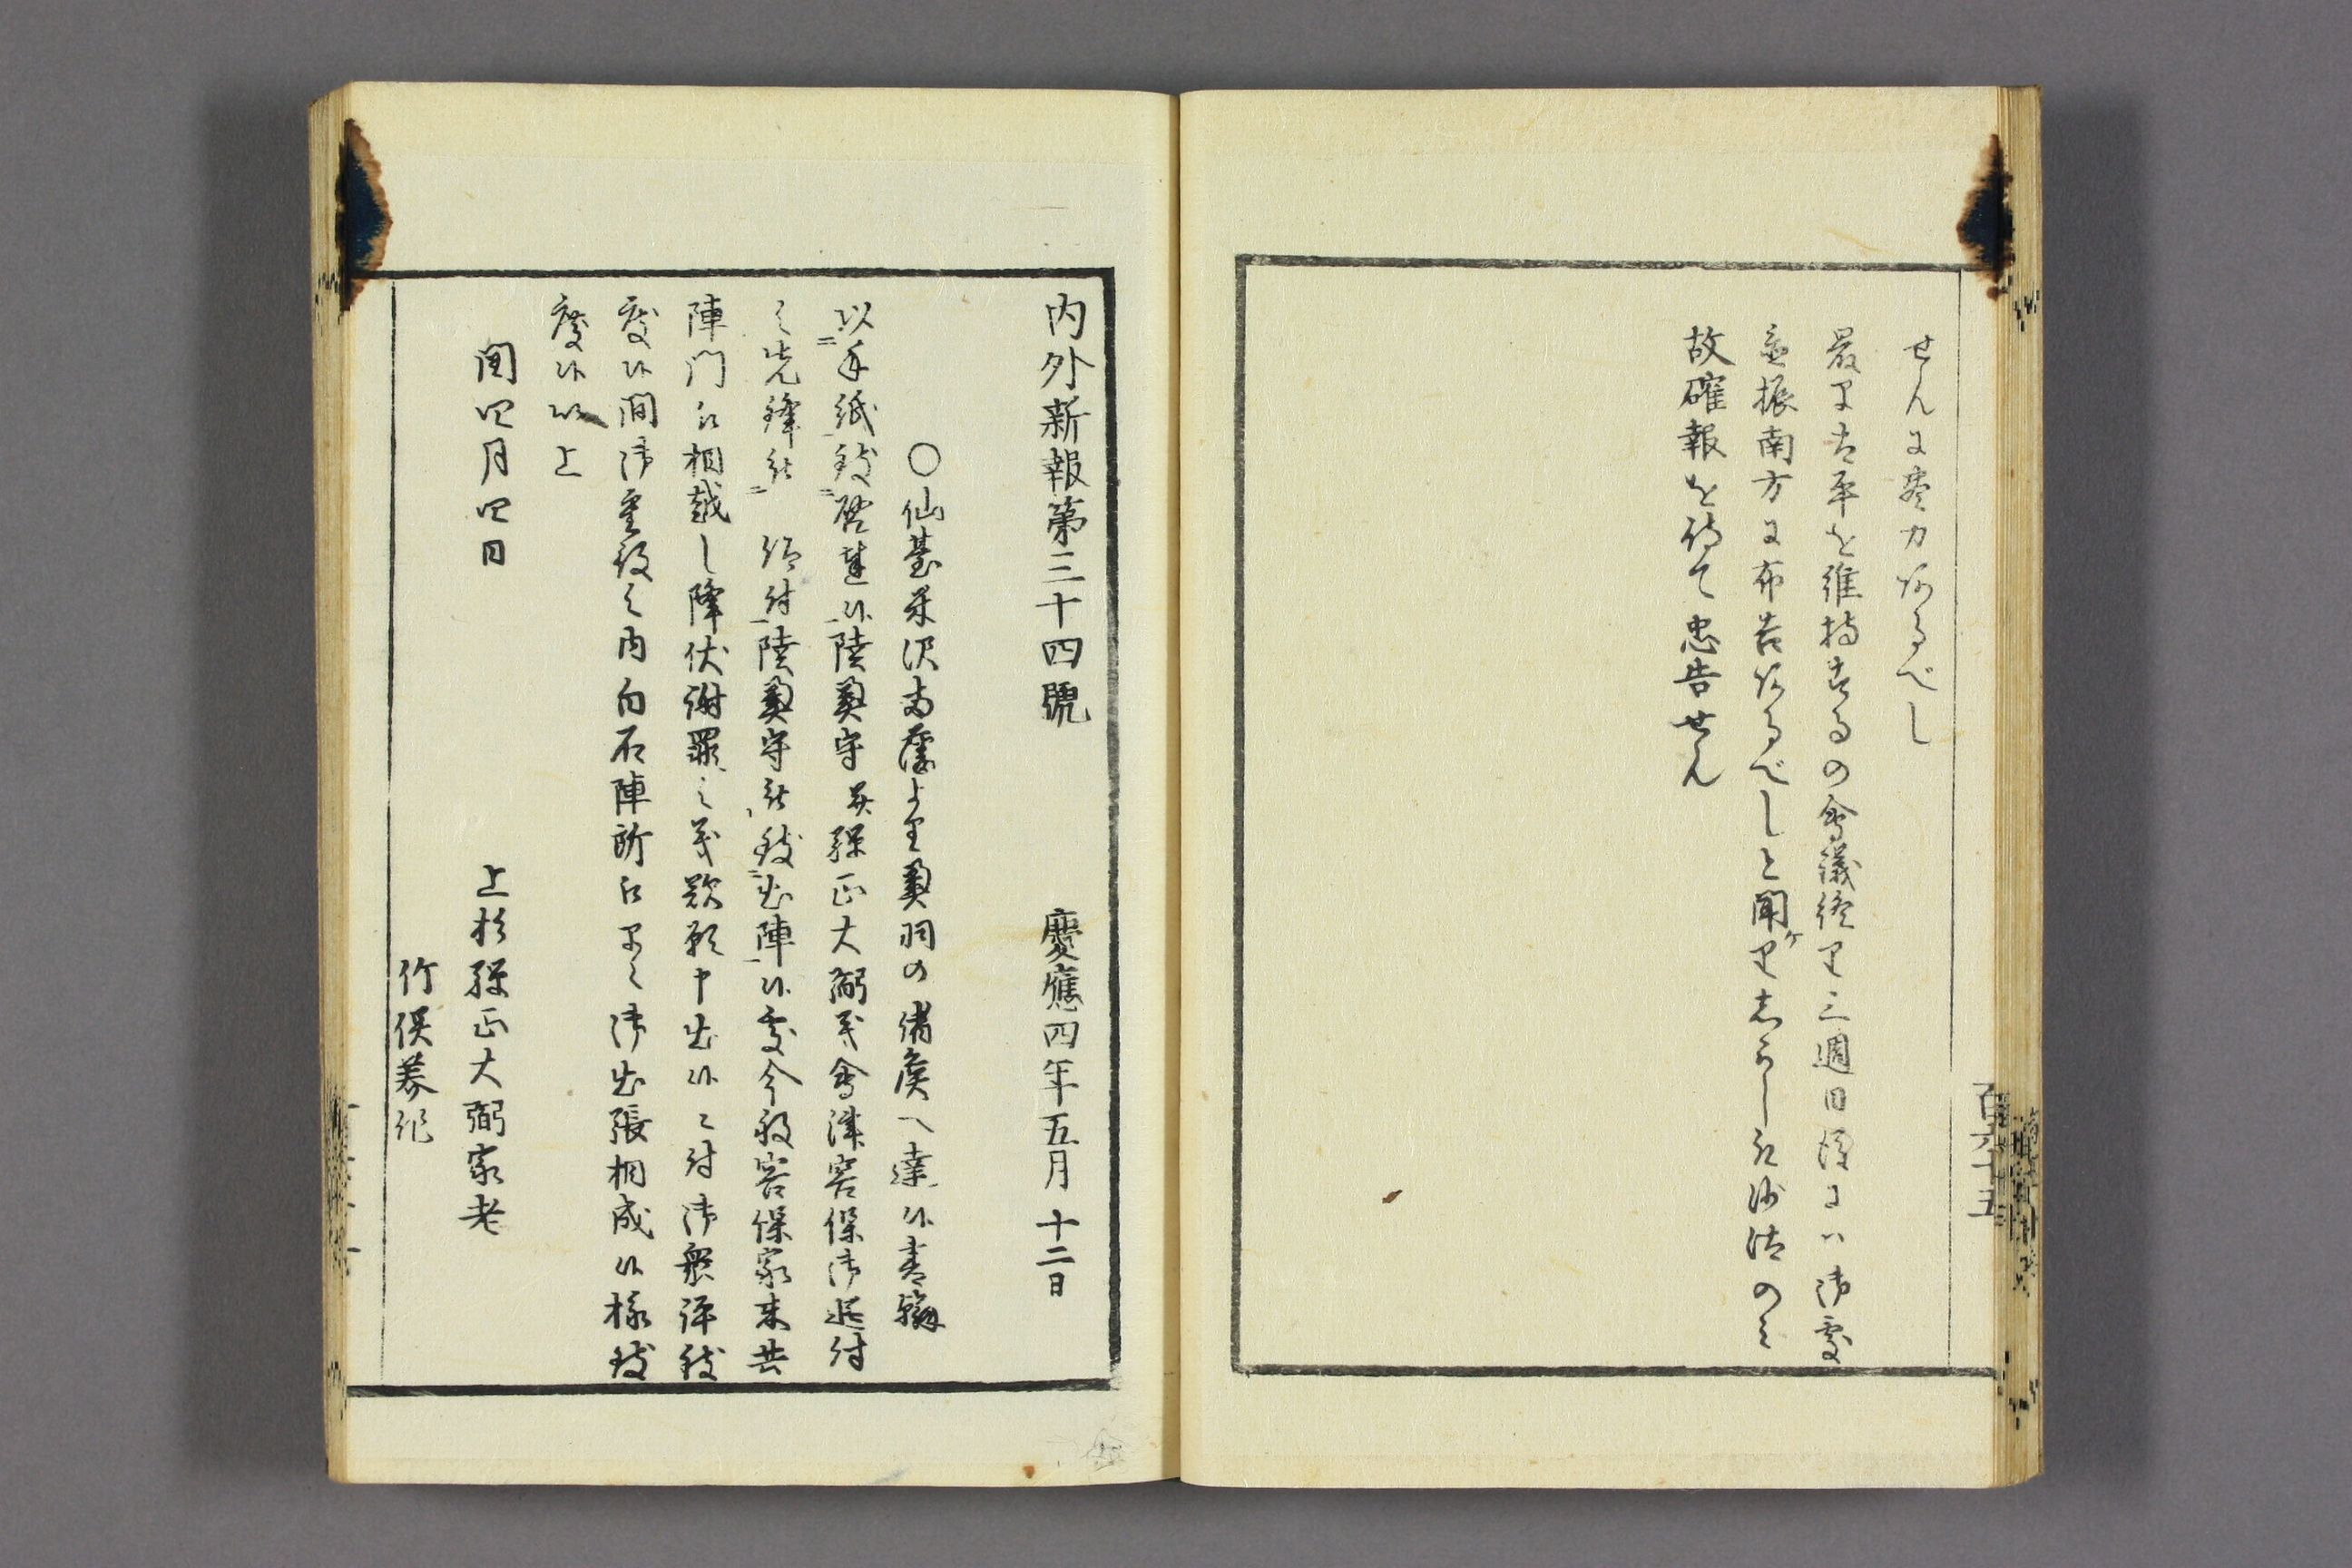 せんに尽力あるべし
最早太平を維持するの會議終り三週日侭にハ御處
並振南方に布告あるべしと聞けり志かし此沙汰のミ
故確報を待て忠告せん
百六十五
内外新報第三十四號 慶應四年五月十二日
〇仙臺米沢両藩より奥羽の諸侯へ達候書翰
以手紙致啓達候陸奥守并弾正大弼義會津容保御追討
之先鋒被 仰付陸奥守被致出陣候處今般容保家来共
陣門江相越し降伏謝罪之義歎願申出候ニ付御衆評致
度候間御重役之内白石陣所江早々御出張相成候様致
度候以上
閏四月四日
上杉弾正大弼家老
竹俣美作